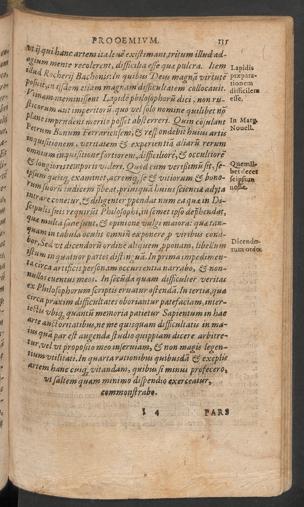 PROOEMIVM. 135
ut ij qui hanc artem ita leuē existimant, tritum illud ad-
agium mente recolerent, difficilia esse quæ pulcra. Item
illud Rocherij Bachonis: In quibus Deus magnā virtutē
posuit, in ijsdem etiam magnam difficultatem collocauit.
Primam meminissent Lapidē philosophorū dici, non ru-
sticorum aut imperitorū, quo vel solo nomine quilibet nō
planè imprudens meritò possit absterreri. Quin consulant
Petrum Bonum Ferrariensem, & respondebit huius artis
inquisitionem, veritatem & experientiā aliarū rerum
omnium inquisitione fortiorem, difficiliorē, & occultiorē
& longioris temporis videre. Quod cum verissimū sit, se-
ipsum quisq; examinet, acremq; se & vitiorum & bono-
rum suorū iudicem præbeat, priusquā huius scientia adyta
intrare conetur, & diligenter ppendat num ea quæ in Di-
scipulis suis requirūt Philosophi, in semet ipso deprehendat,
quæ multa sane sunt, & opinione vulgi maiora: quæ tan-
quam in tabula oculis omniū exponere p viribus coná-
bor. Sed vt dicendorū ordine aliquem pponam, libellum
istum in quatuor partes distinguā. In prima impedimen-
ta circa artificis personam occurrentia narrabo, & non-
nullos euentus meos. In secūda quam difficulter veritas
ex Philosophorum scriptis eruatur ostendā. In tertia, quæ
circa praxim difficultates oboriantur patefaciam, inter-
iectis vbiq; quantū memoria patietur Sapientum in hac
arte auctoritatibus, ne me quisquam difficultatis in ma-
ius quā par est augenda studio quippiam dicere arbitre-
tur, vel vt proposito meo inseruiam, & non magis legen-
tium vtilitati. In quarta rationibus quibusdā & exēplis
artem hanc eiusq; vitandam, quibus si minus profecero,
vt saltem quam minimo dispendio exerceatur,
commonstrabo.
I 4 PARS
Lapidis
præpara-
tionem
difficilem
esse.
In Marg.
Nouell.
Quemli-
bet decet
seipsum
nosse.
Dicendo-
rum ordo.